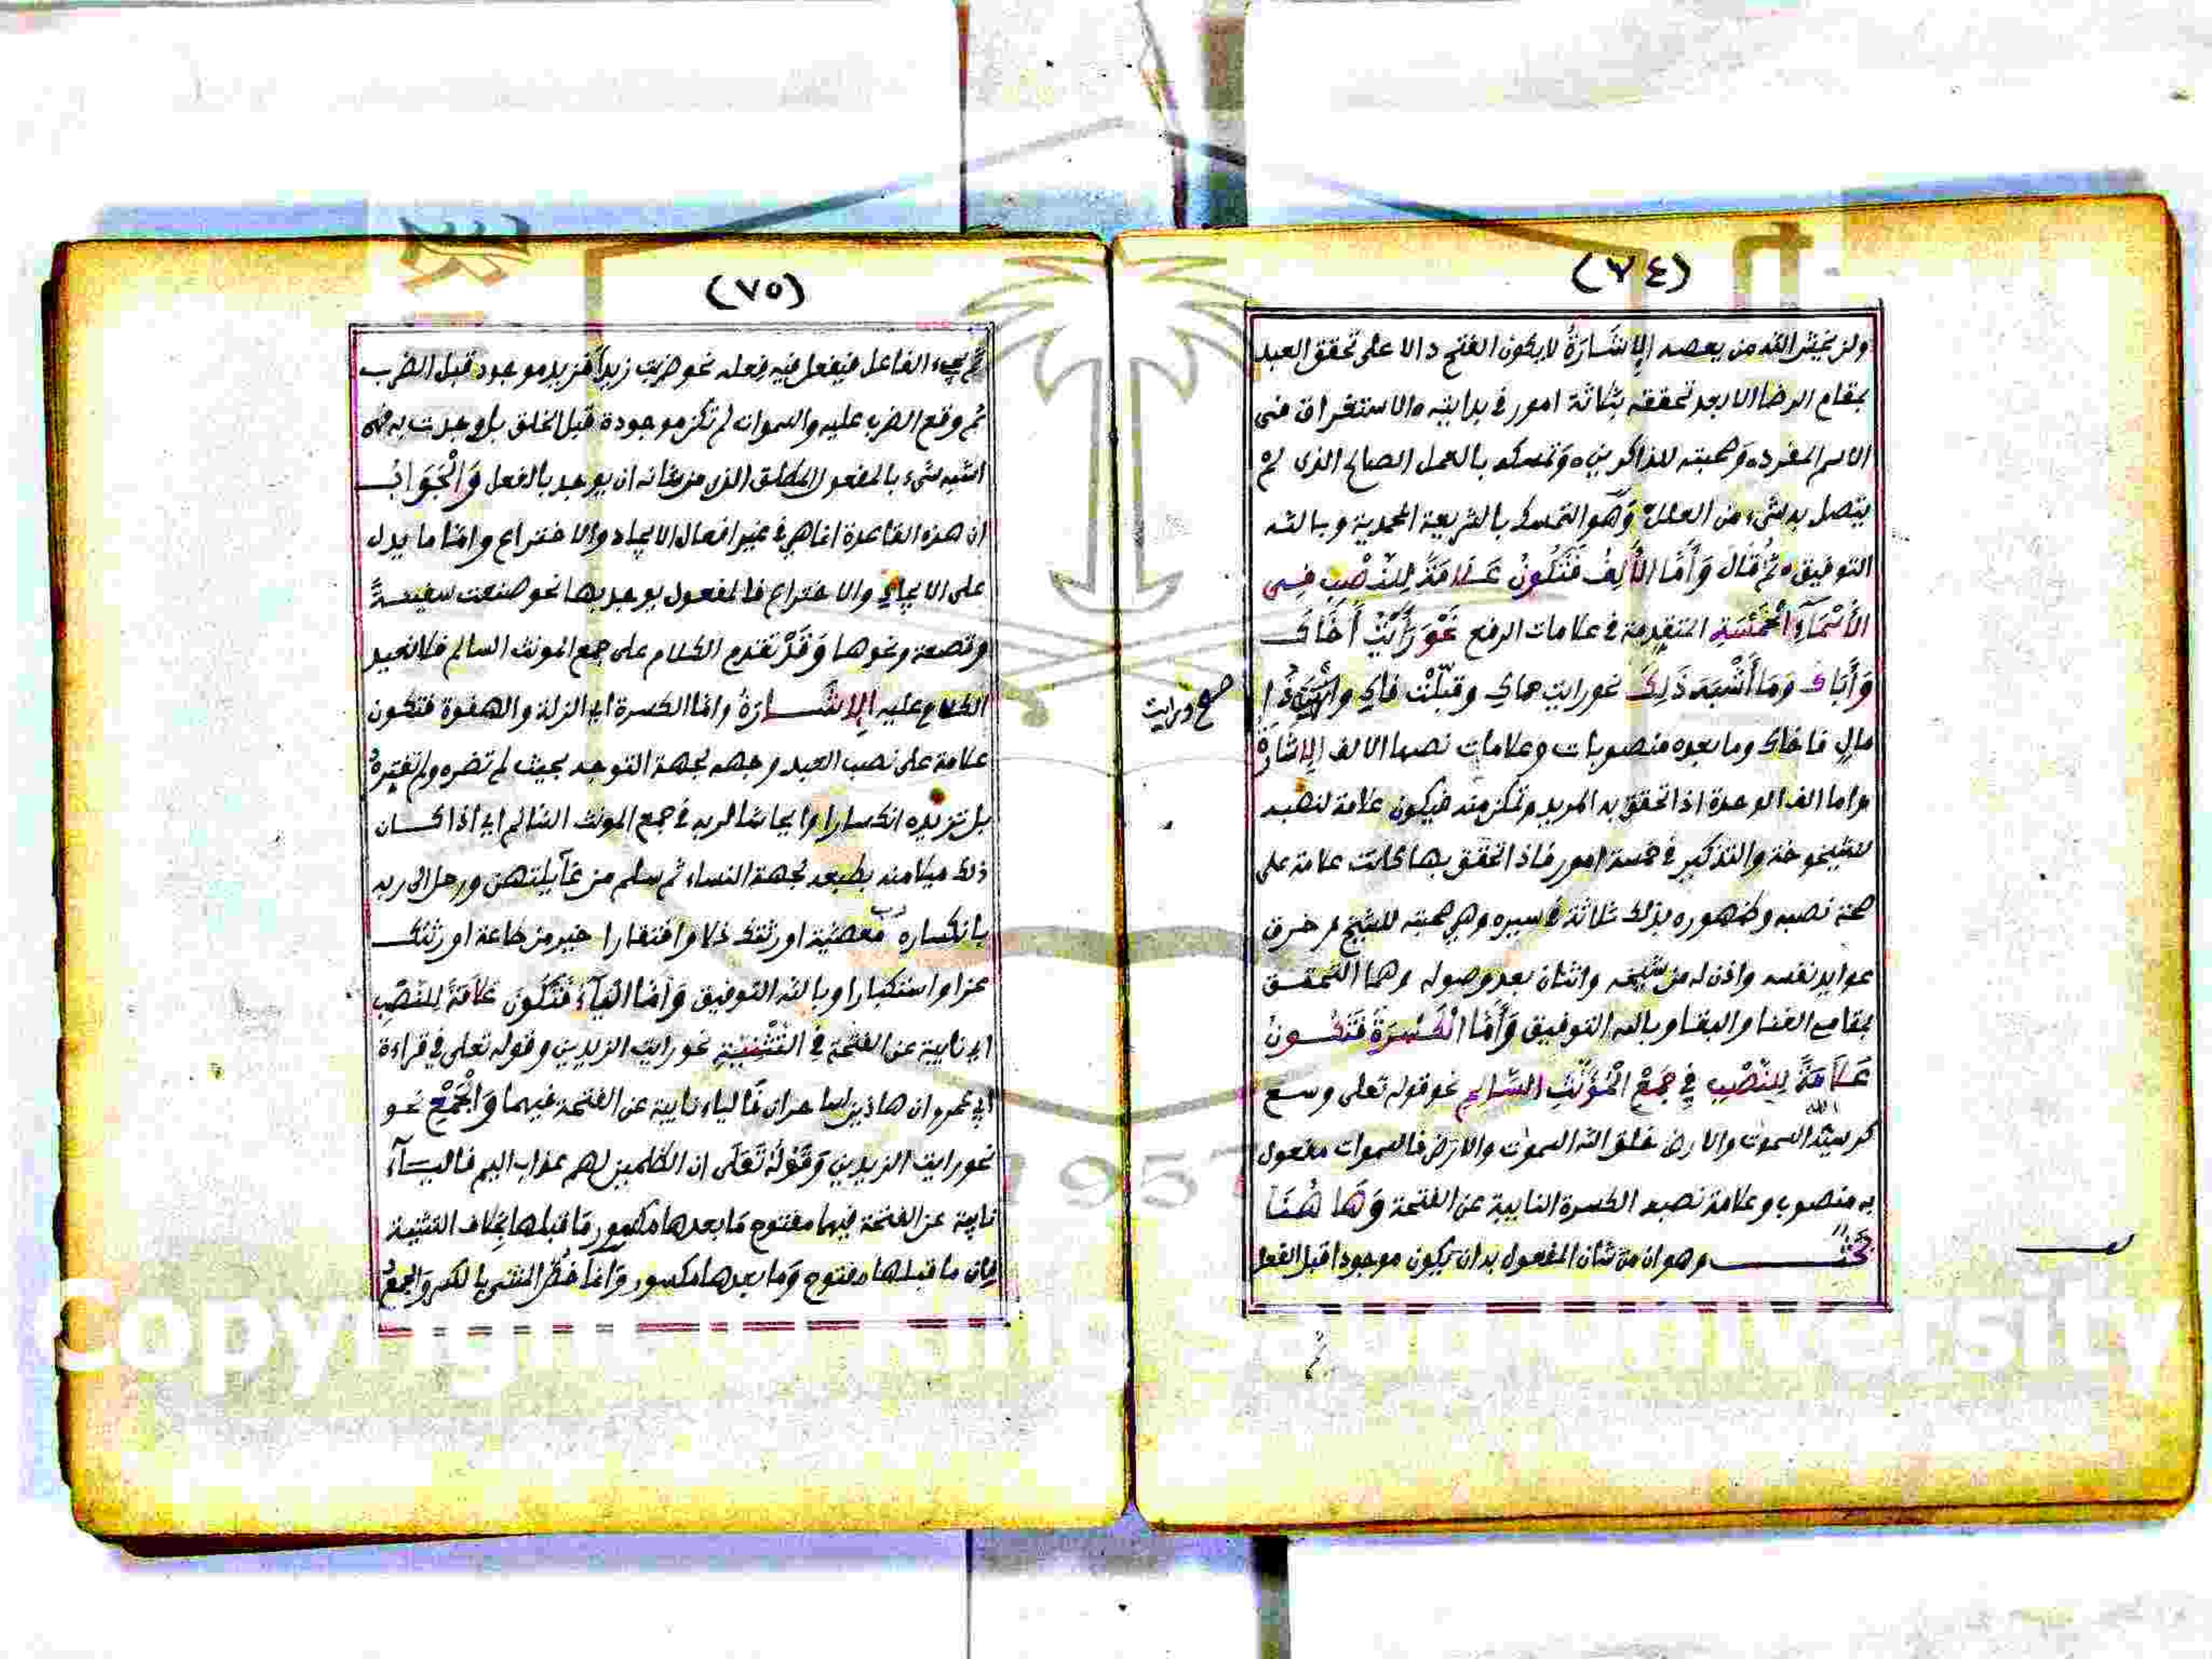 (٧٤)
ولن يخيب الله من يعصه الإِشَارَةُ لا يكون الفتح دالا على تحقق العبد
بمقام الرضا الا بعد تحققه بثلاثة امور في بدايته ه الاستغراق في
الاسم المفرد ه وصحبته للذاكرين ه وتمسكه بالعمل الصالح الذى لم
يتصل به شيء من العلل وَهُو التمسك بالشريعة المحمدية وبالله
التوفيق ه ثم قَالَ وَأَمَّا الأَلِفُ فَتَكُونُ عَلَامَةً لِلنَّصْبِ فِي
الأَسْمَآءِ الْخَمْسَةِ المتقدمة في علامات الرفع نَحْوَ رَأَيْتُ أَخَاكَ
وَأَبَاكَ وَمَا أَشْبَهَ ذَلِكَ نحو رايت حماك وقبّلت فاك ذا
صح ورايت
مال فاخاك وما بعده منصوبات وعلامات نصبها الالف الإِشَارَةُ
واما الف الوحدة اذا تحقق به المريد وتمكن منه فيكون علامة لنصبه
للشيخوخة والتذكير في خمسة امور فاذا تحقق بها كانت علامة على
صحة نصبه وظهوره بذلك ثلاثة في سيره وهي صحبته للشيخ و خرق
عوايد نفسه واذن له من شيخه واثنان بعد وصوله وهما التحقق
بمقامع الفنا والبقا وبالله التوفيق وَأَمَّا الْكَسْرَةُ فَتَكُونُ
عَلَامَةً لِلنَّصْبِ فِي جَمْعِ الْمُؤَنَّثِ السَّالِمِ نحو قوله تعلى وسع
كرسيه السموت والارض خلق الله السموت والارض فالسموات مفعول
به منصوب وعلامة نصبه الكسرة النايبة عن الفتحة وَهَا هُنَا
بَحْثٌ وهو ان من شان المفعول به ان يكون موجودا قبل الفعل
(٧٥)
ثم يجيء الفاعل فيفعل فيه فعله نحو ضربت زيدا فزيد موجود قبل الضرب
ثم وقع الضرب عليه والسموات لم تكن موجودة قبل الخلق بل وجدت به فهي
اشبه شيء بالمفعول المطلق الذي من شانه ان يوجد بالفعل وَالْجَوَابُ
ان هذه القاعدة انما هي في غير افعال الايجاد والاختراع واما ما يدل
على الايجاد والاختراع فالمفعول يوجد بها نحو صنعت سفينةً
وقصعة ونحوها وَقَدْ تقدم الكلام على جمع المونث السالم فلا نعيد
الكلام عليه الإِشَارَةُ واما الكسرة اي الزلة والهفوة فتكون
علامة على نصب العبد وجهه لجهة التوحيد بحيث لم تضره ولم تغيره
بل تزيده انكسارا وايحاشا لربه في جمع المونث السالم اي اذا كان
ذلك ميلا منه بطبعه لجهة النساء ثم سلم من غآيلتهن ورحل الى ربه
بانكساره رب معصية اورثتك ذلا وافتقارا خير من طاعة اورثتك
عزا واستكبارا وبالله التوفيق وَأَمَّا الْيَآءُ فَتَكُونَ عَلَامَةً لِلنَّصْبِ
اي نايبة عن الفتحة في التَّثْنِيَةِ نحو رايت الزيدين وقوله تعلى في قراءة
ابي عمرو ان هاذين لساحران فالياء نايبة عن الفتحة فيهما وَالْجَمْعِ نحو
نحو رايت الزيدين وَقَوْلُهُ تَعَلَى ان الظلمين لهم عذاب اليم فاليآء
نايبة عن الفتحة فيها مفتوح مَا بعدها مكسور مَا قبلها بخلاف التثنية
فان ما قبلها مفتوح وَما بعدها مكسور وَانما خُصَّ المثنى بالكسر والجمع